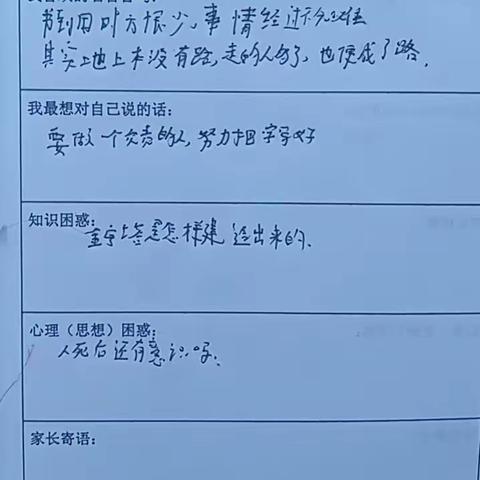 书到用时方恨少,事情经过不
其实地上本没有路,走的人多了,也便成了路.
我最想对自己说的话:
要做一个负责的人,努力把字写好
知识困惑:
是怎样建造出来的.
心理(思想)困惑:
人死后还有意识吗.
家长寄语: